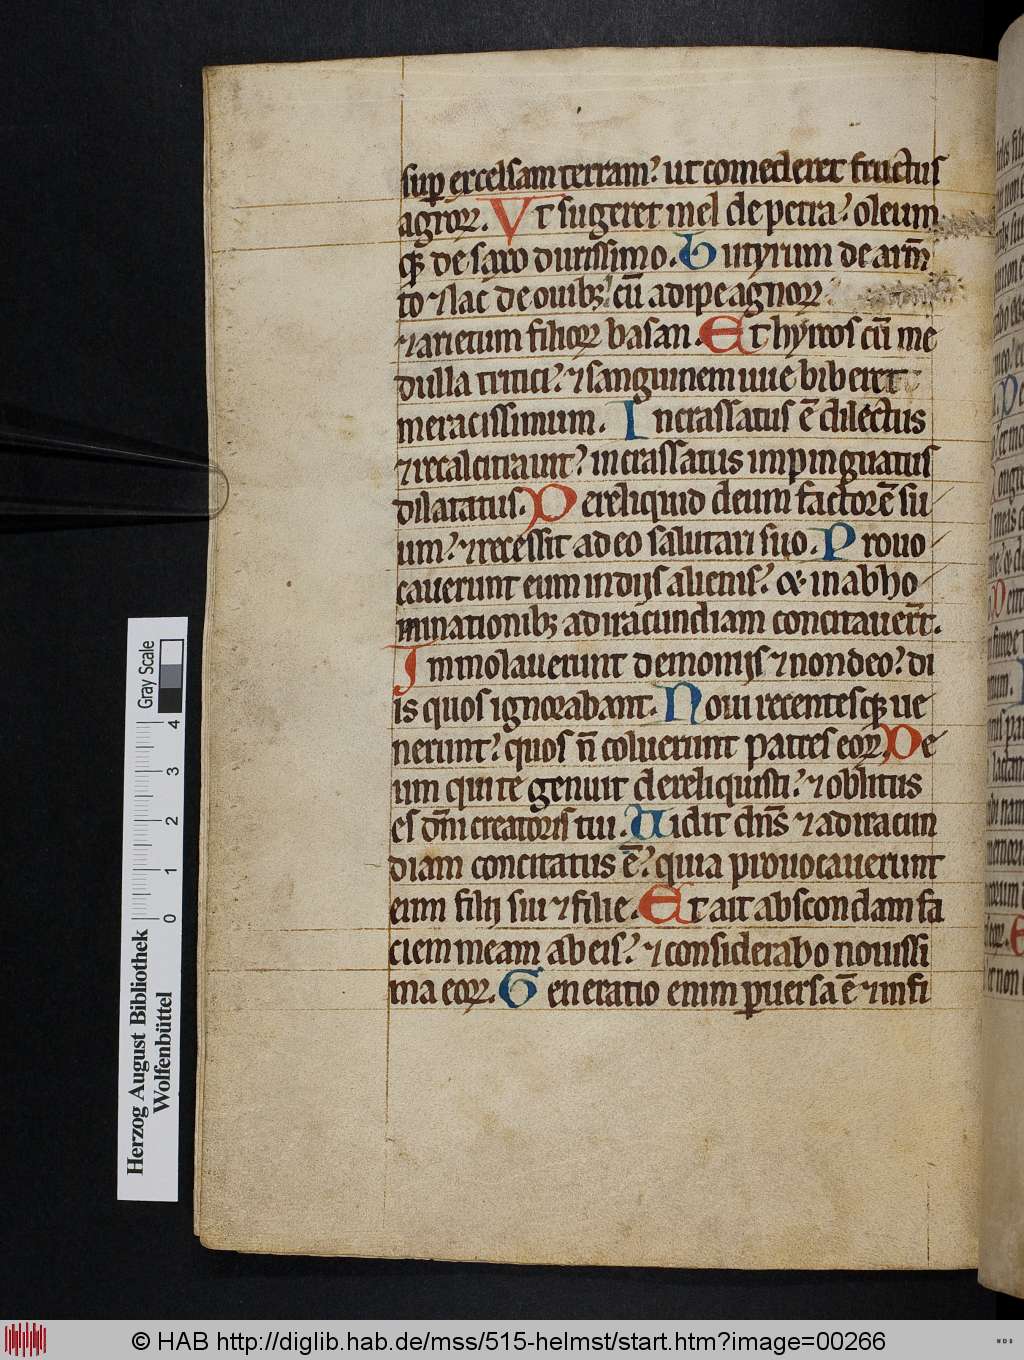 sup excelsam terram? ut comederet fructus
agroꝝ. Vt sugeret mel de petra? oleum
qꝫ de saxo durissimo. Butyrum de arm̄
to ⁊ lac de ouibꝫ? cū adipe agnoꝝ
⁊ arietum filioꝝ basan. Et hyrcos cū me
dulla tritici? ⁊ sanguinem uue biberet
meracissimum. Incrassatus ē dilectus
⁊ recalcitrauit? incrassatus impinguatus
dilatatus. Dereliquid deum factorē su
um? ⁊ recessit a deo salutari suo. Prouo
cauerunt eum in diis alienis? & in abho
minationibꝫ ad iracundiam concitauer̄t.
Immolauerunt demoniis ⁊ non deo? di
is quos ignorabant. Noui recentesqꝫ ue
nerunt? quos n̄ coluerunt patres eoꝝ. De
um qui te genuit dereliquisti? ⁊ oblitus
es dn̄i creatoris tui. Uidit dn̄s ⁊ ad iracun
diam concitatus ē? quia prouocauerunt
eum filii sui ⁊ filie. Et ait abscondam fa
ciem meam ab eis? ⁊ considerabo nouissi
ma eoꝝ. Generatio enim ꝑuersa ē ⁊ infi
Gray Scale
4
3
2
1
0
Herzog August Bibliothek
Wolfenbüttel
© HAB http://diglib.hab.de/mss/515-helmst/start.htm?image=00266